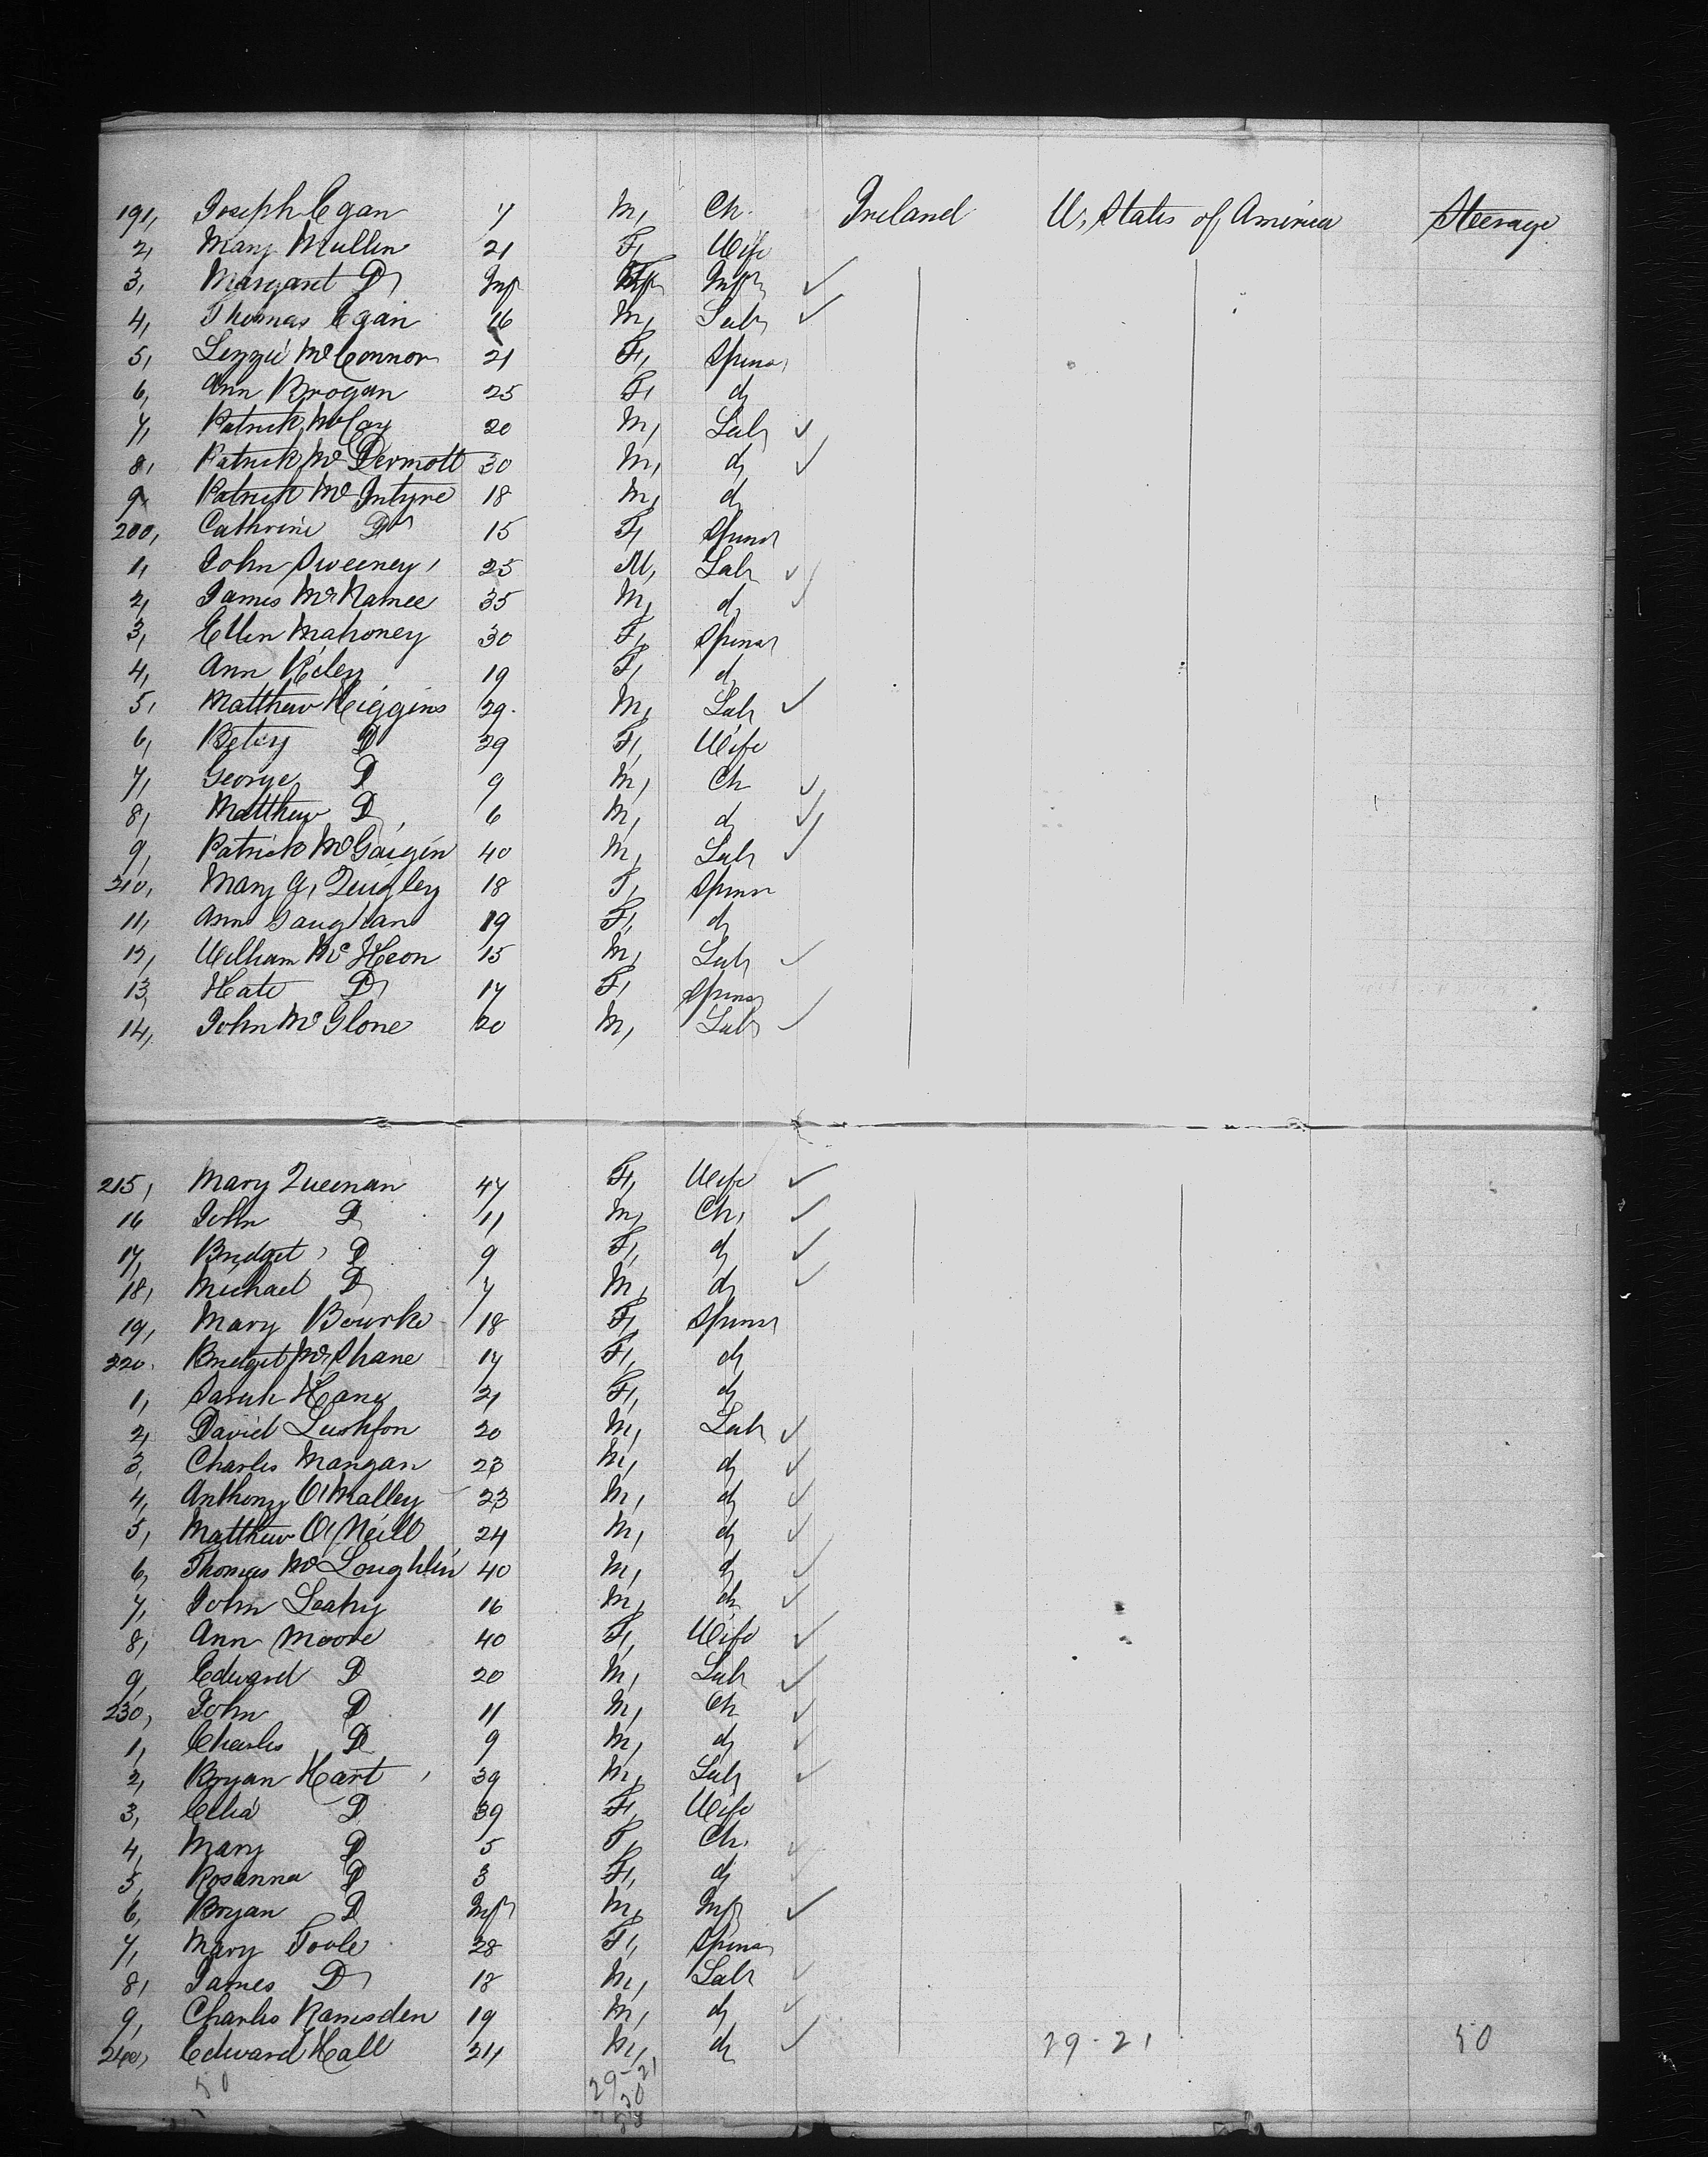 191, Joseph Egan 7 M, Ch. Ireland U, States of America Steerage
2, Mary Mullin 21 F, Wife
3, Margaret D Inf Inf
4, Thomas Egan 16 M, Lab
5, Lizzie McConnor 21 F, Spins
6, Ann Brogan 25 F, d
7, Patrick McCay 20 M, Lab
8, Patrick McDermott 30 M, d
9, Patrick McIntyre 18 M, d
200, Cathrine D 15 F, Spins
1, John Sweeney, 25 M, Lab
2, James McNamee 35 M, d
3, Ellen Mahoney 30 F, Spins
4, Ann Riley 19 F, d
5, Matthew Higgins 29. M, Lab
6, Betsy D 29 F, Wife
7, George D 9 M, Ch
8, Matthew D, 6 M, d
9, Patrick McGaigin 40 M, Lab
210, Mary A, Quigley 18 F, Spins
11, Ann Gaughan 19 F, d
12, William McKeon 15 M, Lab
13, Kate D 17 F, Spins
14, John McGlone 20 M, Lab
215, Mary Queenan 47 F, Wife
16 John D 11 M, Ch,
17, Bridget, D 9 F, d
18, Michael D 7 M, d
19, Mary Bourke 18 F, Spins
220. Bridget McShane 17 F, d
1, Sarah Kane 21 F, d
2, David 20 M, Lab
3, Charles Mangan 23 M, d
4, Anthony O'Malley 23 M, d
5, Matthew O'Neill 24 M, d
6, Thomas McLoughlin 40 M, d
7, John Leahy 16 M, d
8, Ann Moore 40 F, Wife
9, Edward D 20 M, Lab
230, John D 11 M, Ch
1, Charles D 9 M, d
2, Bryan Hart, 39 M, Lab
3, Celia D 39 F, Wife
4, Mary D 5 F, Ch.
5, Rosanna D 3 F, d
6, Bryan D Inf M, Inf
7, Mary Toole 28 F, Spins
8, James D 18 M, Lab
9, Charles Ramsden 19 M, d
240, Edward Hall 24 M, d 29-21 50
50 29-21